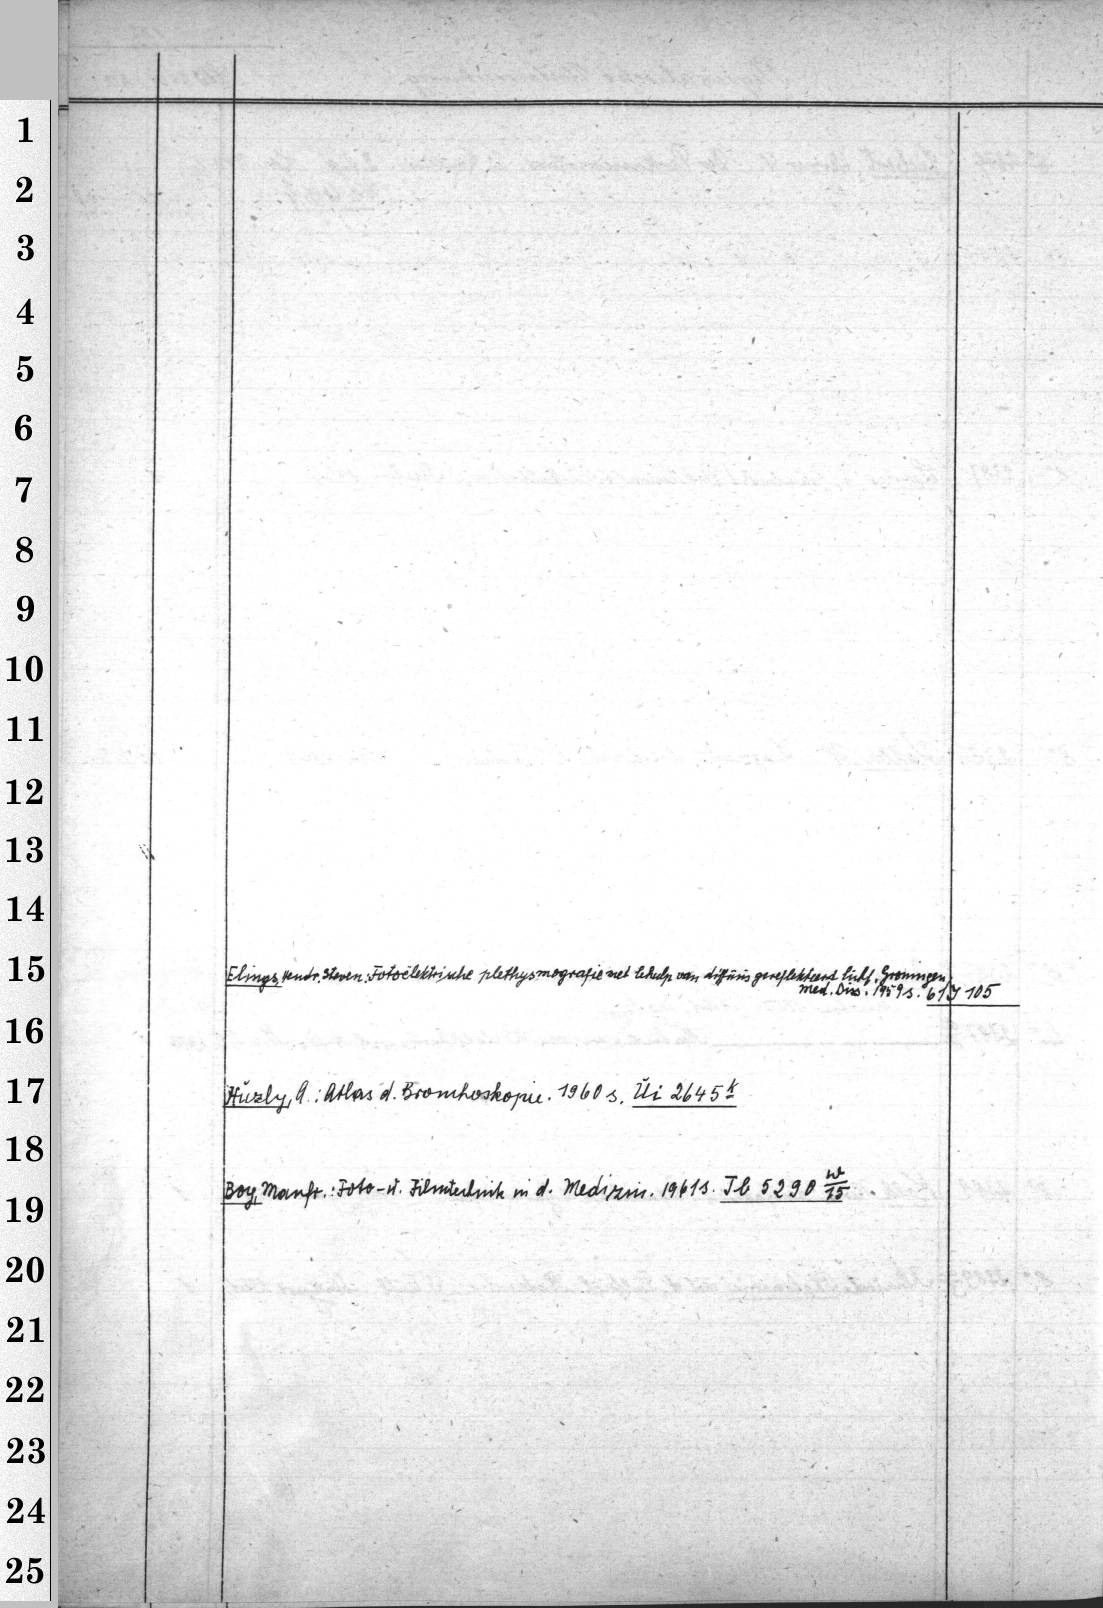 1
2
3
4
5
6
7
8
9
10
11
12
13
14
15
Elings, Hendr. Steven: Fotoëlektrische plethysmografie met behulp van diffuus gereflekteerd licht. Groningen,
med. Diss. 1959 s. 61 J 105
16
17
Huzly, A.: Atlas d. Bronchoskopie. 1960 s. Üi 2645 k
18
Boy, Manfr.: Foto- u. Filmtechnik in d. Medizin. 1961 s. Jb 5290 w/15
19
20
21
22
23
24
25